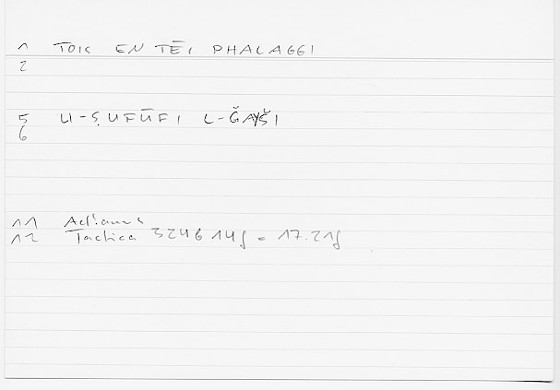 1 TOIS EN TĒI PHALAGGI
2
5 LI-ṢUFŪFI L-ĞAYŠI
6
11 Aelianus
12 Tactica 3246 14f = 17.21f